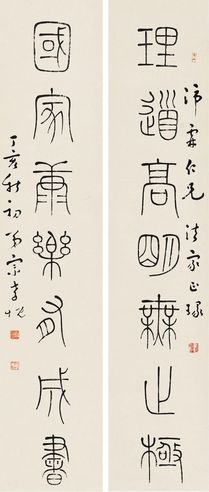 沛霖仁兄法家正瑑
理道高明無止極
國家康樂有成書
丁亥秋初弟宗孝忱